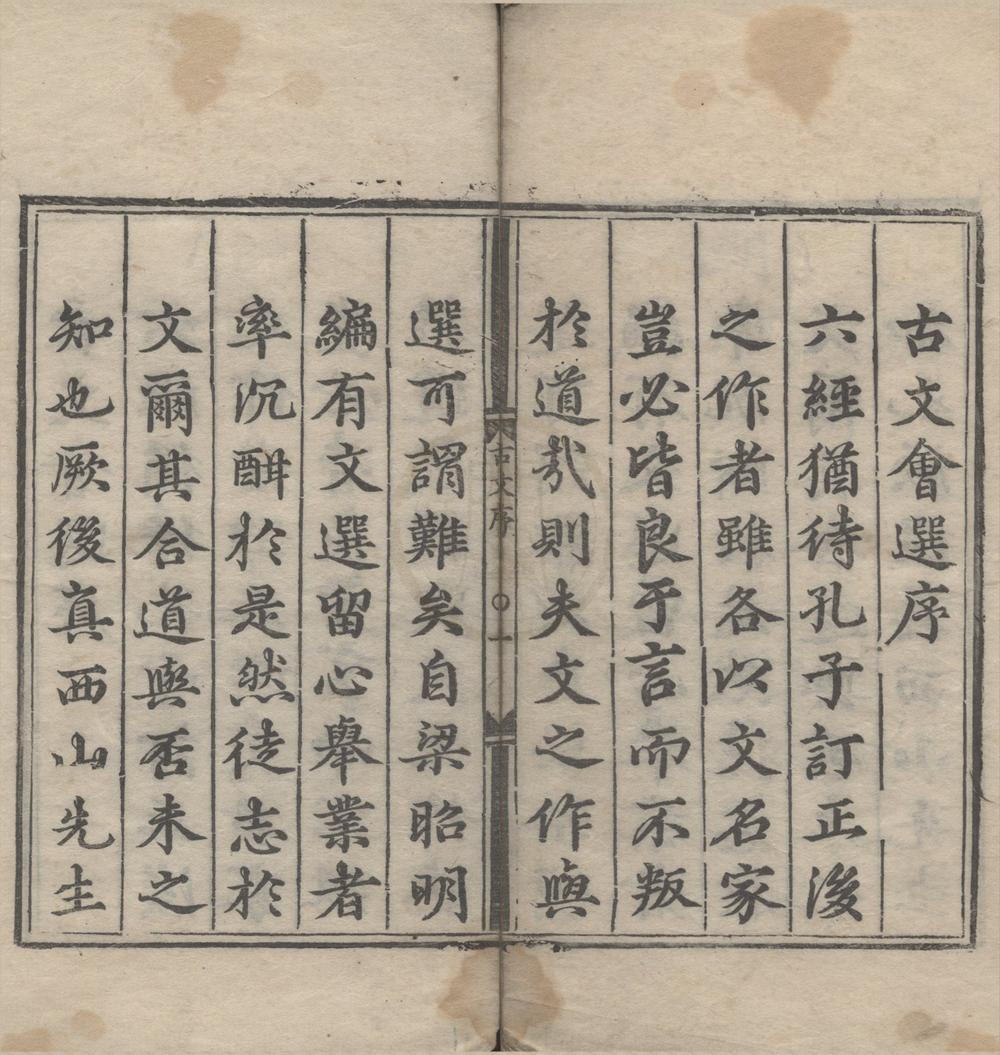 古文會選序
六經猶待孔子訂正後
之作者雖各以文名家
豈必皆良于言而不叛
於道㢤則夫文之作與
古文序 〇一
選可謂難矣自梁昭明
編有文選留心舉業者
率沉酣於是然徒志於
文爾其合道與否未之
知也厥後真西山先生